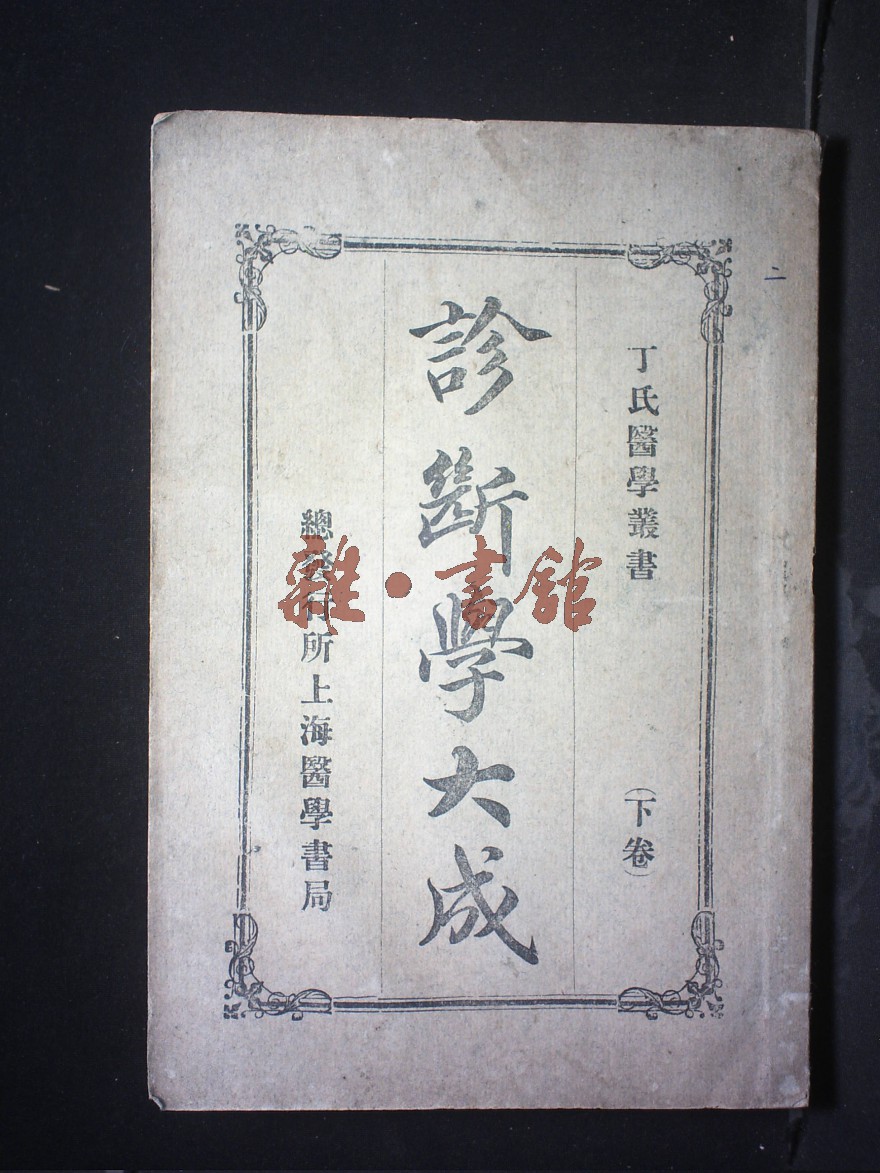 二
丁氏醫學叢書
（下卷）
診斷學大成
總發行所上海醫學書局
雜·書館